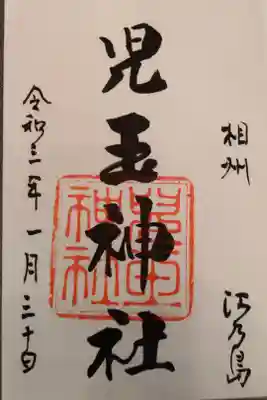 相州 江乃島
児玉神社
令和三年一月三十日
児玉神社